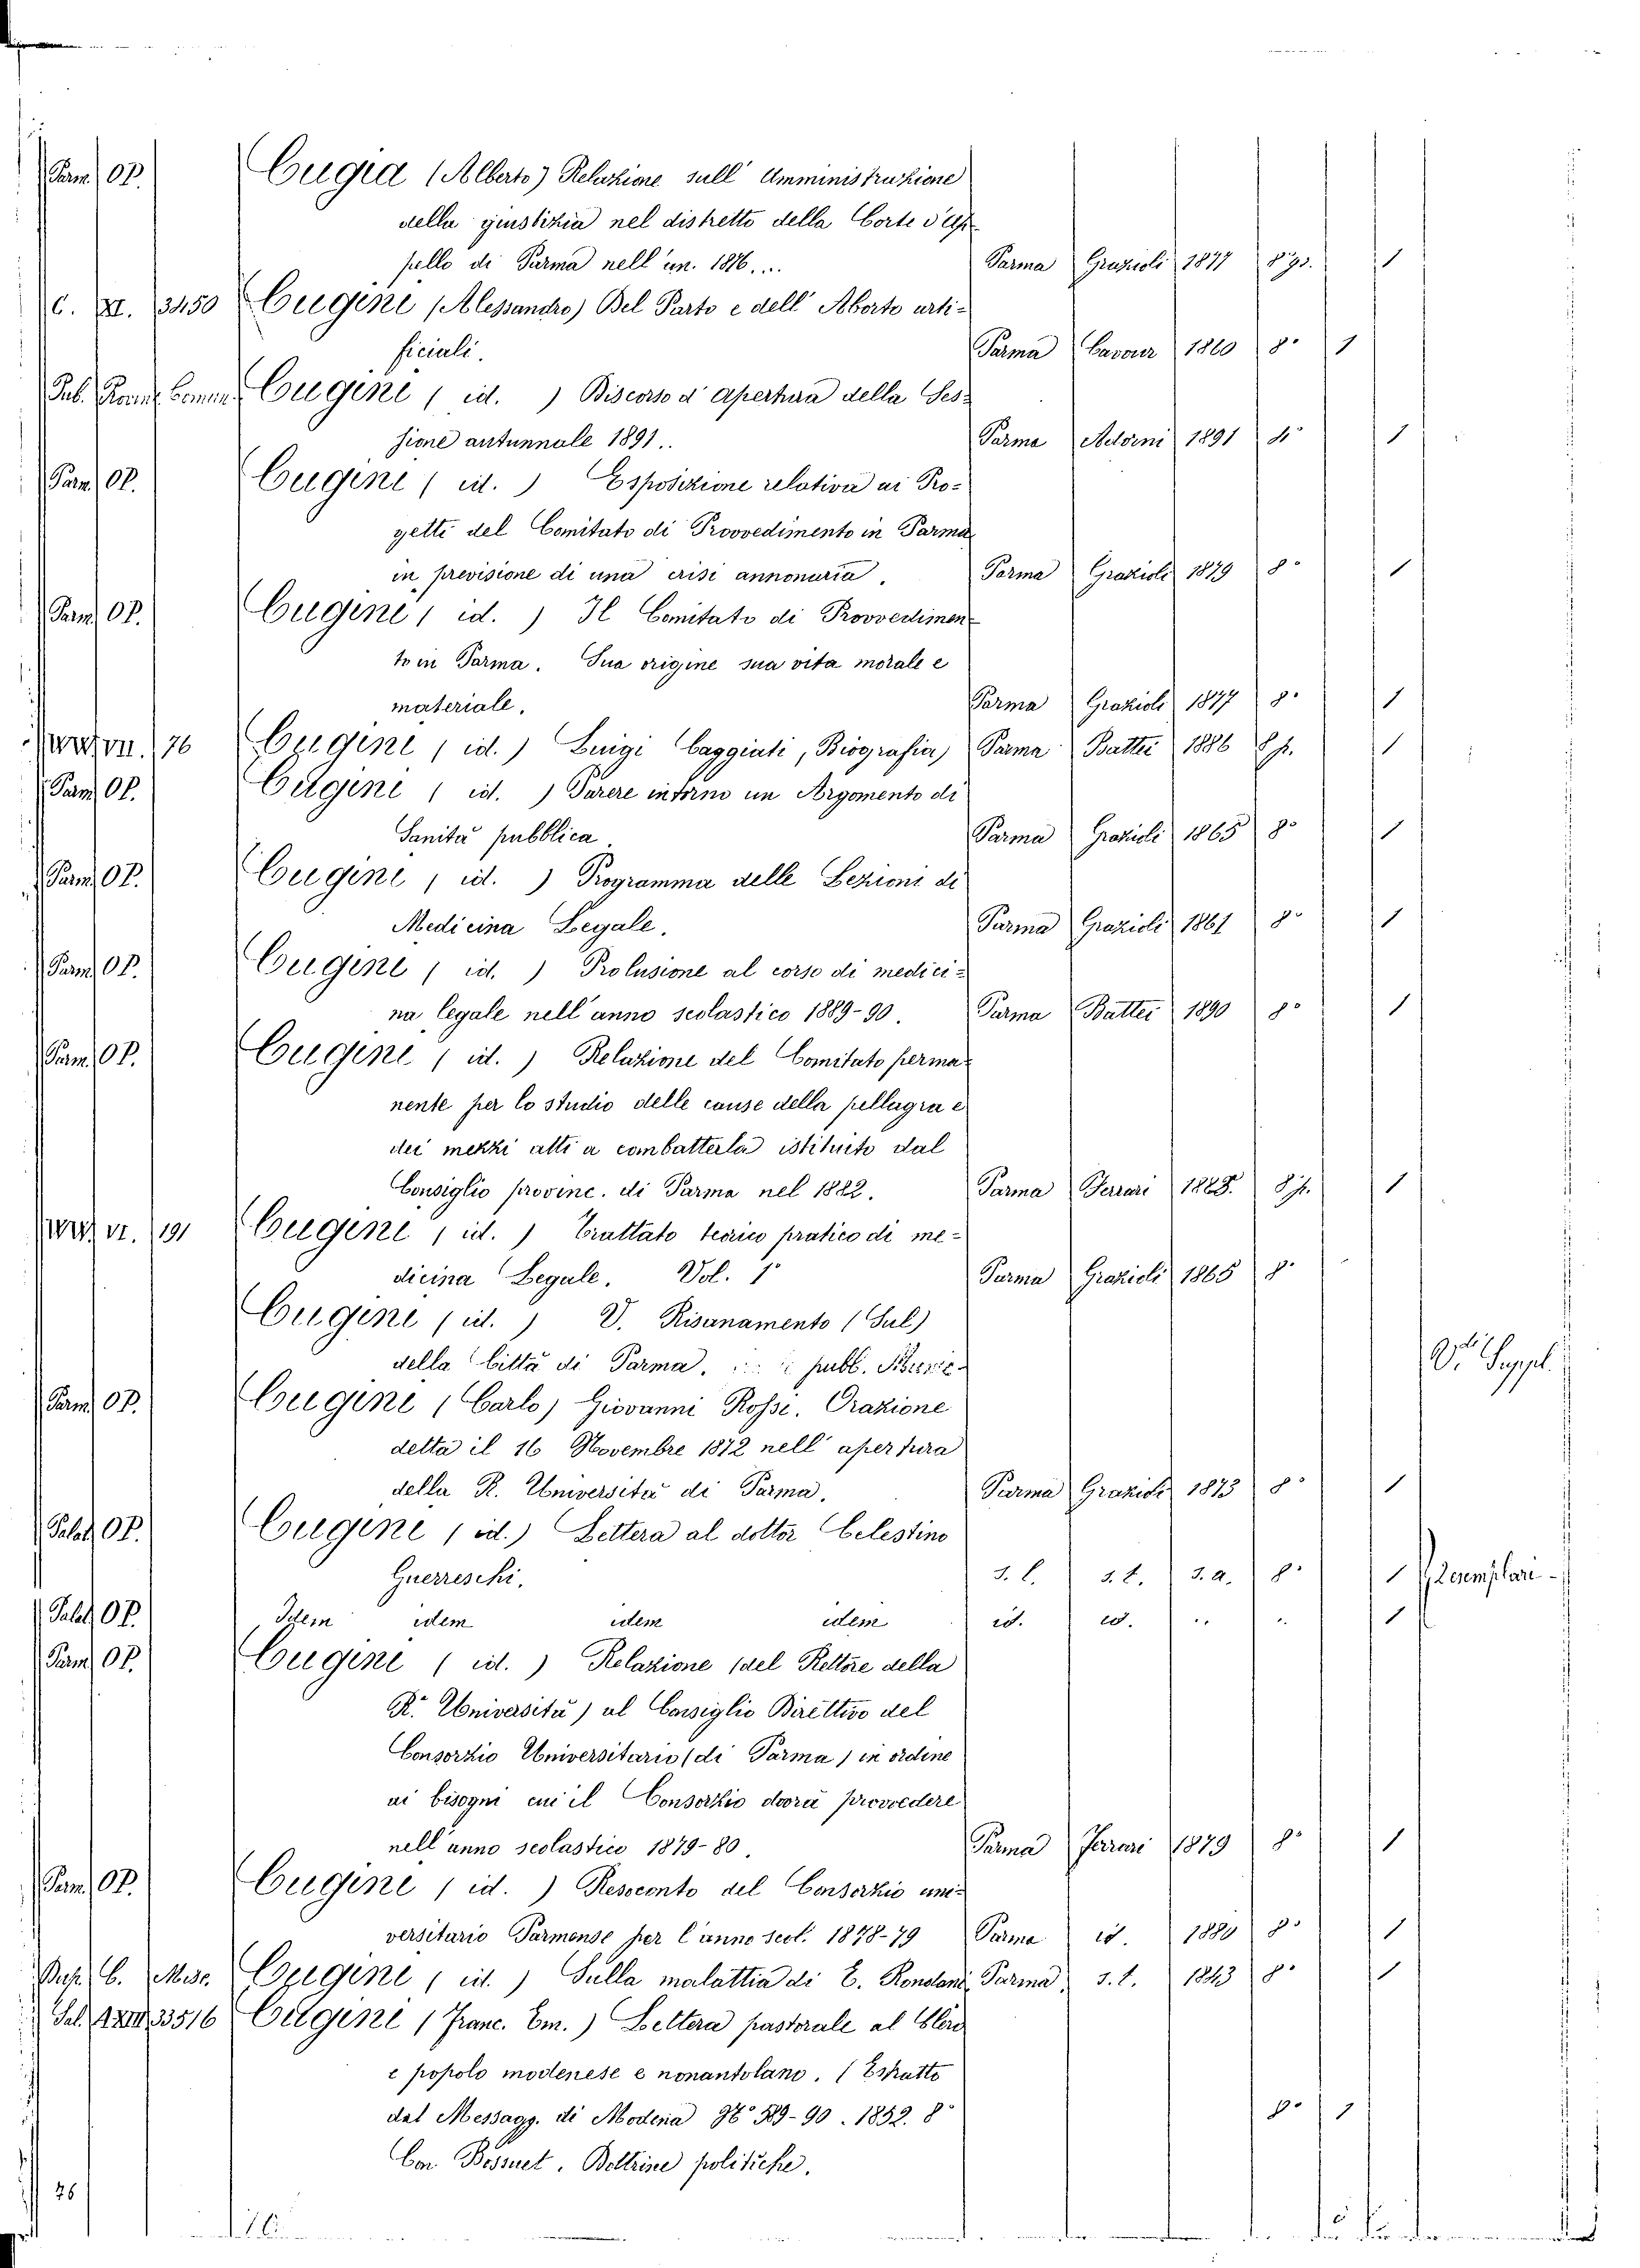 Parm. OP. Cugia (Alberto) Relazione sull' Amministrazione
della giustizia nel distretto della Corte d'Ap-
pello di Parma nell'an. 1876... Parma Grazioli 1877 8° gr. 1
C. XI. 3450 Cugini (Alessandro) Del Parto e dell' Aborto arti-
ficiali. Parma Cavour 1860 8° 1
Cugini ( id. ) Discorso d' apertura della Ses-
sione autunnale 1891.. Parma Adorni 1891 4° 1
Parm. OP. Cugini ( id. ) Esposizione relativa ai Pro-
getti del Comitato di Provvedimento in Parma
in previsione di una crisi annonaria. Parma Grazioli 1879 8° 1
Parm. OP. Cugini ( id. ) Il Comitato di Provvedimen-
to in Parma. Sua origine sua vita morale e
materiale. Parma Grazioli 1877 8° 1
VII. 76 Cugini ( id. ) Luigi Caggiati, Biografia) Parma Battei 1886 8° p. 1
Parm. OP. Cugini ( id. ) Parere intorno un Argomento di
Sanità pubblica. Parma Grazioli 1865 8° 1
Parm. OP. Cugini ( id. ) Programma delle Lezioni di
Medicina Legale. Parma Grazioli 1861 8° 1
Parm. OP. Cugini ( id. ) Prolusione al corso di medici-
na legale nell'anno scolastico 1889-90. Parma Battei 1890 8° 1
Parm. OP. Cugini ( id. ) Relazione del Comitato perma-
nente per lo studio delle cause della pellagra e
dei mezzi atti a combatterla istituito dal
Consiglio provinc. di Parma nel 1882. Parma Ferrari 1888. 8° p. 1
VI. 191 Cugini ( id. ) Trattato teorico pratico di me-
dicina Legale. Vol. 1° Parma Grazioli 1865 8°
Cugini ( id. ) V. Risanamento (Sul)
della Città di Parma. pubb. V. Suppl.
Parm. OP. Cugini (Carlo) Giovanni Rossi. Orazione
detta il 16 Novembre 1872 nell' apertura
della R. Università di Parma. Parma Grazioli 1873 8° 1
Palat. OP. Cugini ( id.) Lettera al dottor Celestino
Guerreschi. s. l. s. t. s. a. 8° 1 2 esemplari -
Palat. OP. Idem idem idem idem id. id. .. .. 1
Parm. OP. Cugini ( id. ) Relazione (del Rettore della
R.ª Università) al Consiglio Direttivo del
Consorzio Universitario (di Parma) in ordine
ai bisogni cui il Consorzio dovrà provvedere
nell'anno scolastico 1879-80. Parma Ferrari 1879 8° 1
Parm. OP. Cugini ( id. ) Resoconto del Consorzio uni-
versitario Parmense per l'anno scol. 1878-79 Parma id. 1880 8° 1
C. Misc. Cugini ( id. ) Sulla malattia di C. Rondani Parma s. t. 1843 8° 1
Sal. XXIII 33516 Cugini (Franc. Em.) Lettera pastorale al Clero
e popolo modenese e nonantolano. (Estratto
dal Messagg. di Modena N° 589-90. 1852. 8° 8° 1
Con Bossuet. Dottrine politiche.
26